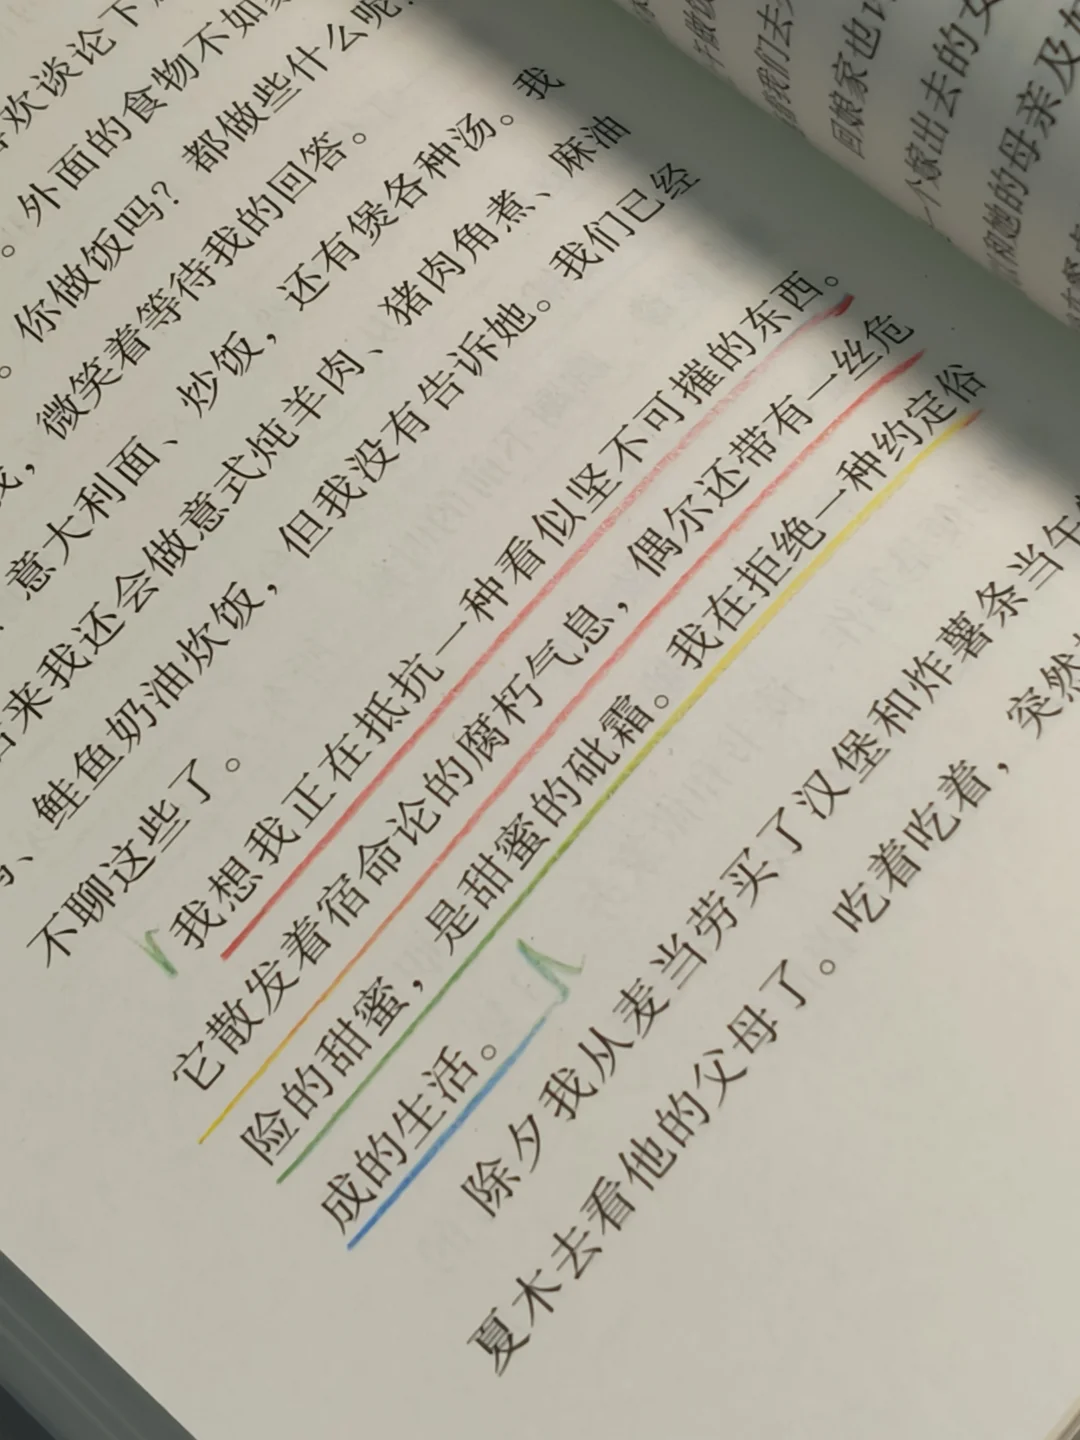 喜欢谈论下
。外面的食物不如
。你做饭吗？都做些什么呢
，微笑着等待我的回答。
意大利面、炒饭，还有煲各种汤。我
后来我还会做意式炖羊肉、猪肉角煮、麻油
、鲑鱼奶油炊饭，但我没有告诉她。我们已经
不聊这些了。
我想我正在抵抗一种看似坚不可摧的东西。
它散发着宿命论的腐朽气息，偶尔还带有一丝危
险的甜蜜，是甜蜜的砒霜。我在拒绝一种约定俗
成的生活。
除夕我从麦当劳买了汉堡和炸薯条当午
夏木去看他的父母了。吃着吃着，突然
我们去
回娘家也
一个嫁出去的女
和她的母亲及